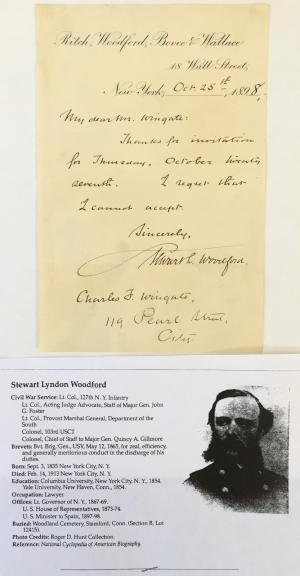 Ritch, Woodford, Bovee & Wallace
18 Wall Street,
New York, Oct. 25th, 1898,
My dear Mr. Wingate:
Thanks for invitation
for Thursday, October twenty
seventh. I regret that
I cannot accept.
Sincerely,
Stewart L. Woodford.
Charles F. Wingate,
119 Pearl Street,
City.
Stewart Lyndon Woodford
Civil War Service: Lt. Col., 127th N. Y. Infantry
Lt. Col., Acting Judge Advocate, Staff of Major Gen. John
G. Foster
Lt. Col., Provost Marshal General, Department of the
South
Colonel, 103rd USCT
Colonel, Chief of Staff to Major Gen. Quincy A. Gillmore
Brevets: Bvt. Brig. Gen., USV, May 12, 1865, for zeal, efficiency,
and generally meritorious conduct in the discharge of his
duties.
Born: Sept. 3, 1835 New York City, N. Y.
Died: Feb. 14, 1913 New York City, N. Y.
Education: Columbia University, New York City, N. Y., 1854.
Yale University, New Haven, Conn., 1854.
Occupation: Lawyer.
Offices: Lt. Governor of N. Y., 1867-69.
U. S. House of Representatives, 1873-74.
U. S. Minister to Spain, 1897-98.
Buried: Woodland Cemetery, Stamford, Conn. (Section B, Lot
12415).
Photo Credits: Roger D. Hunt Collection.
Reference: National Cyclopedia of American Biography.